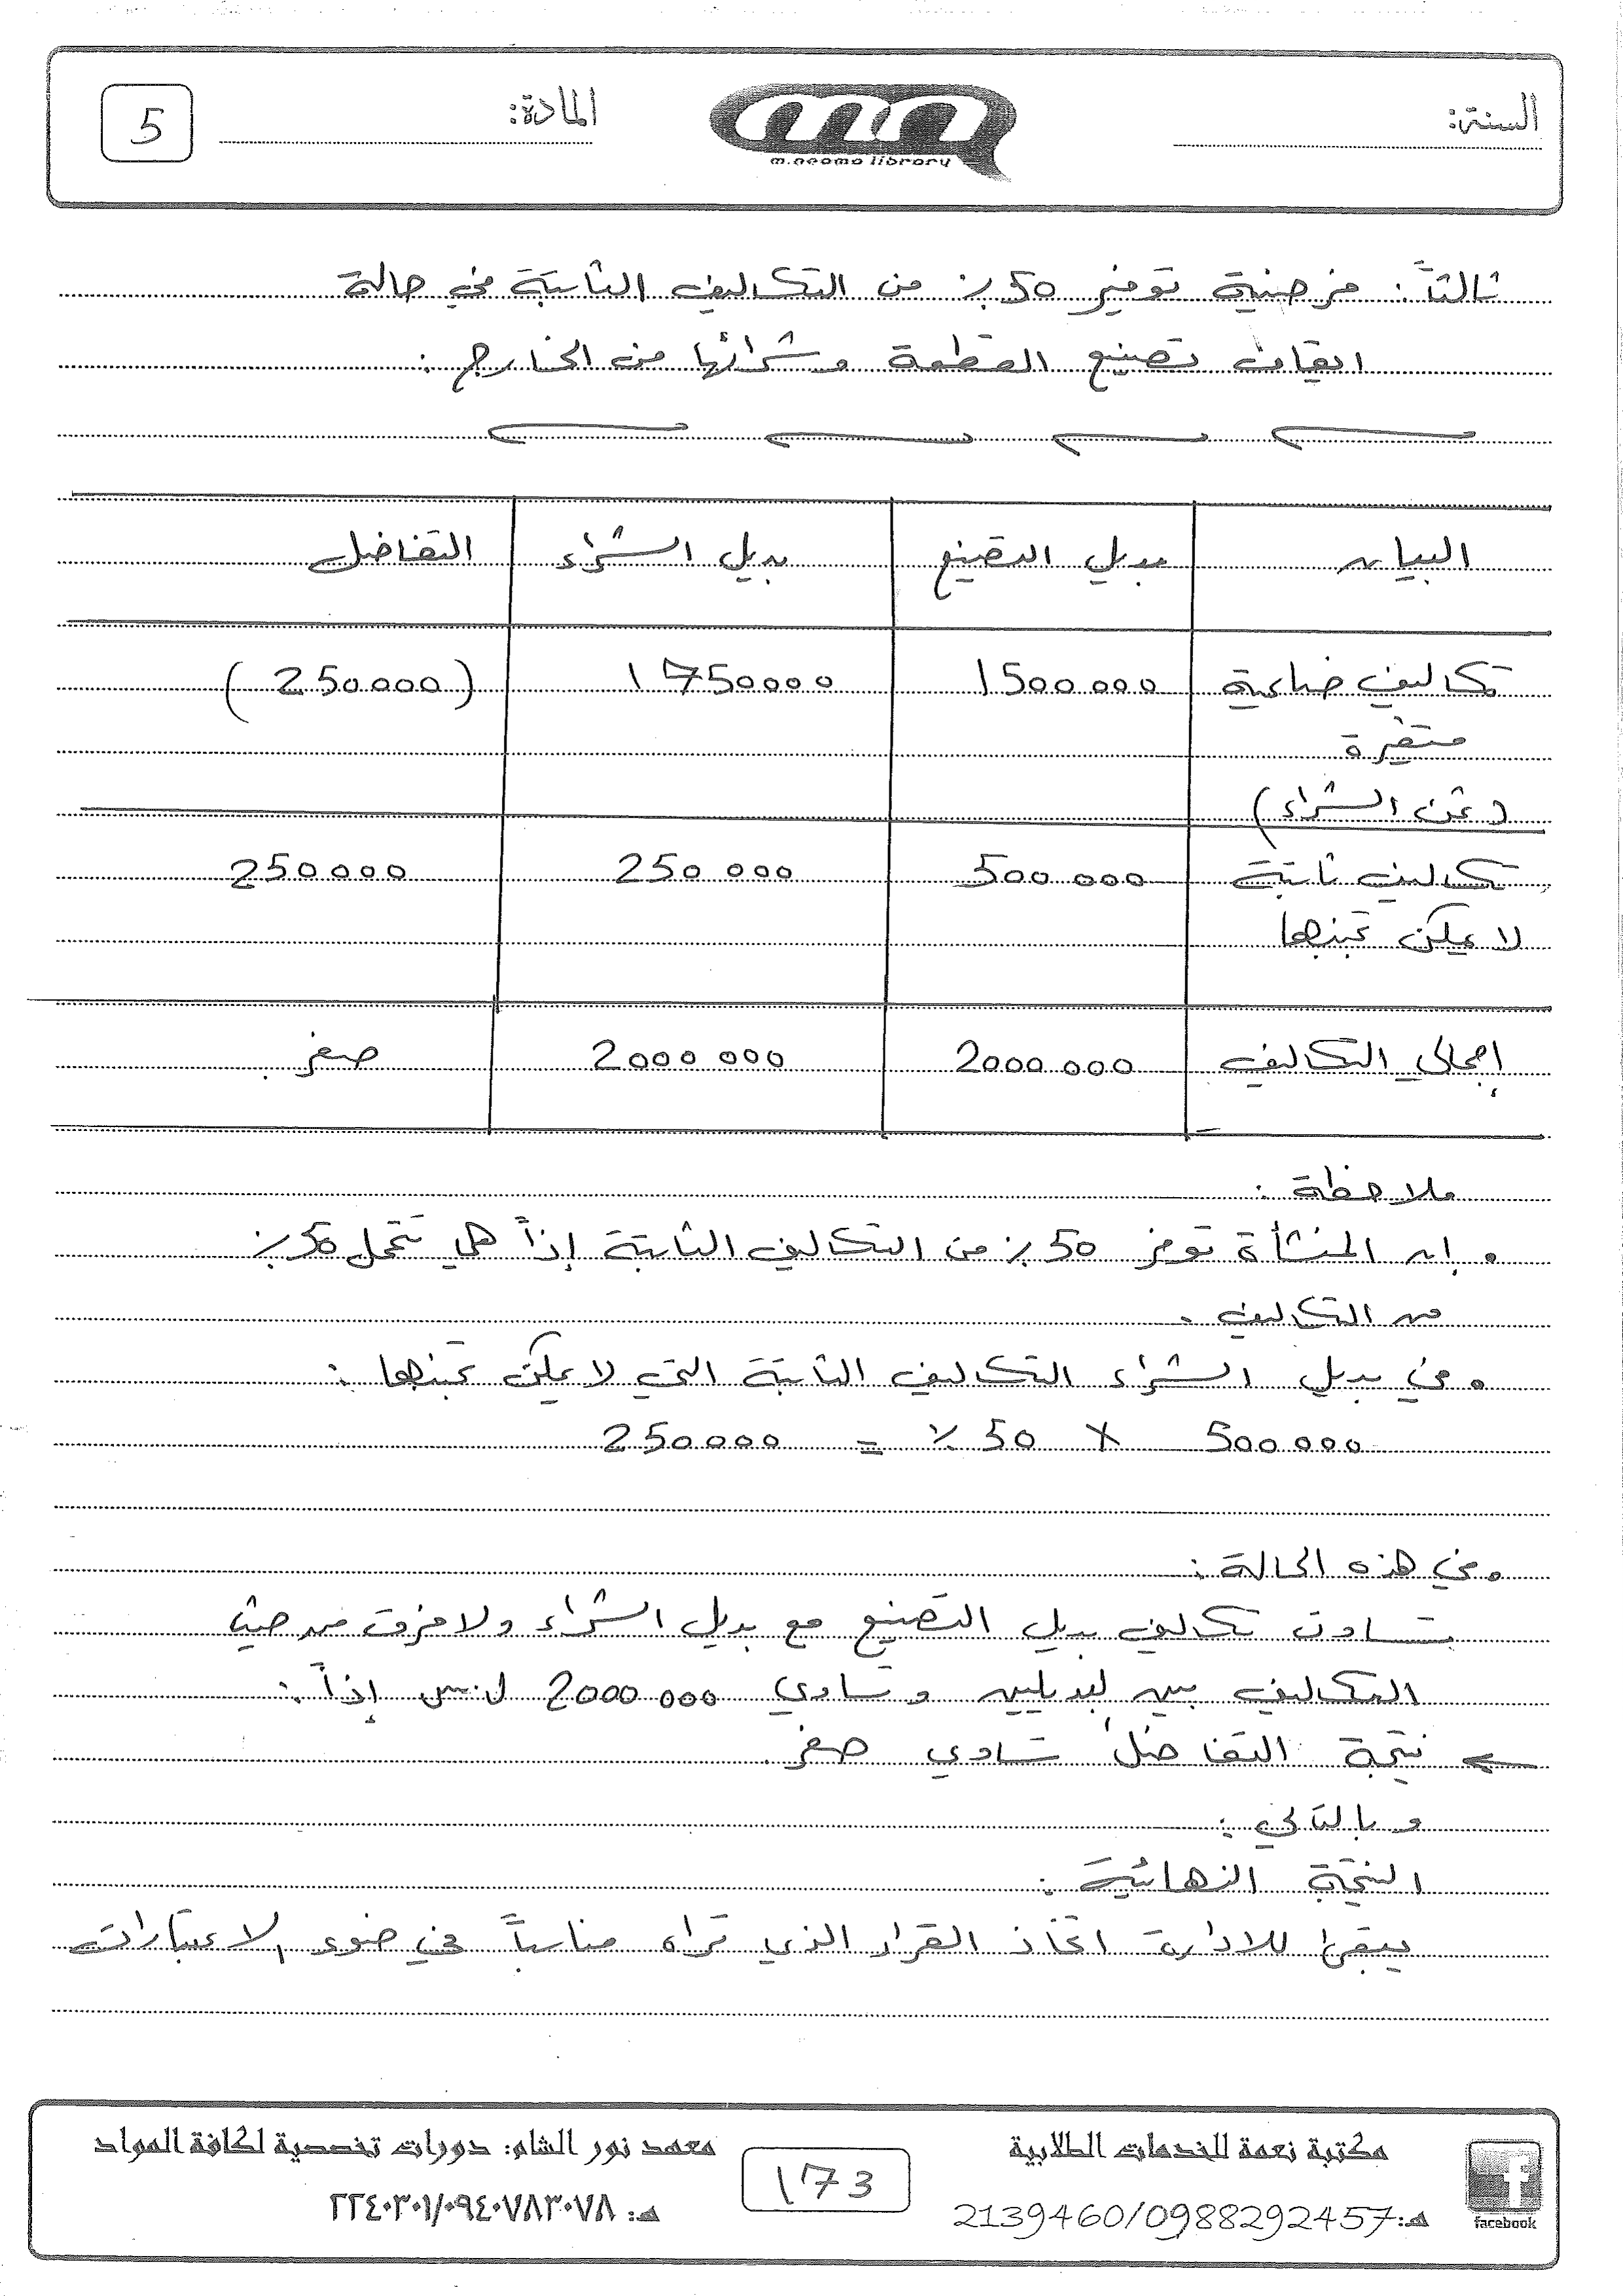 السنة:
m.neama library
المادة:
5
ثالثاً: فرضية توفير 50٪ من التكاليف الثابتة في حالة
ايقاف تصنيع القطعة وشرائها من الخارج:
البيان بديل التصنيع بديل الشراء التفاضل
تكاليف صناعية 1500000 1750000 (250000)
متغيرة
(ثمن الشراء)
تكاليف ثابتة 500000 250000 250000
لا يمكن تجنبها
إجمالي التكاليف 2000000 2000000 صفر
ملاحظة:
• إن المنشأة توفر 50٪ من التكاليف الثابتة إذاً هي تتحمل 50٪
من التكاليف.
• في بديل الشراء التكاليف الثابتة التي لا يمكن تجنبها:
500000 × 50٪ = 250000
• في هذه الحالة:
تساوت تكاليف بديل التصنيع مع بديل الشراء ولا فرق من حيث
التكاليف بين البديلين وتساوي 2000000 ل.س إذاً:
← نتيجة التفاضل تساوي صفر.
وبالتالي:
النتيجة النهائية:
يبقى للادارة اتخاذ القرار الذي تراه مناسباً في ضوء الاعتبارات
facebook
مكتبة نعمة للخدمات الطلابية
هـ: 2139460/0988292457
173
معهد نور الشام: دورات تخصصية لكافة المواد
هـ: ٢٢٤٠٣٠١/٠٩٤٠٧٨٣٠٧٨